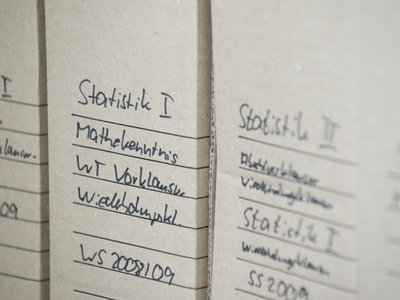 I
09
Statistik I
Mathekenntnis
WT Vorklausur
Wiederholungskl.
WS 2008/09
Statistik III
Wiederholungsklausur
Statistik I
Wiederholungsklausur
SS 2009